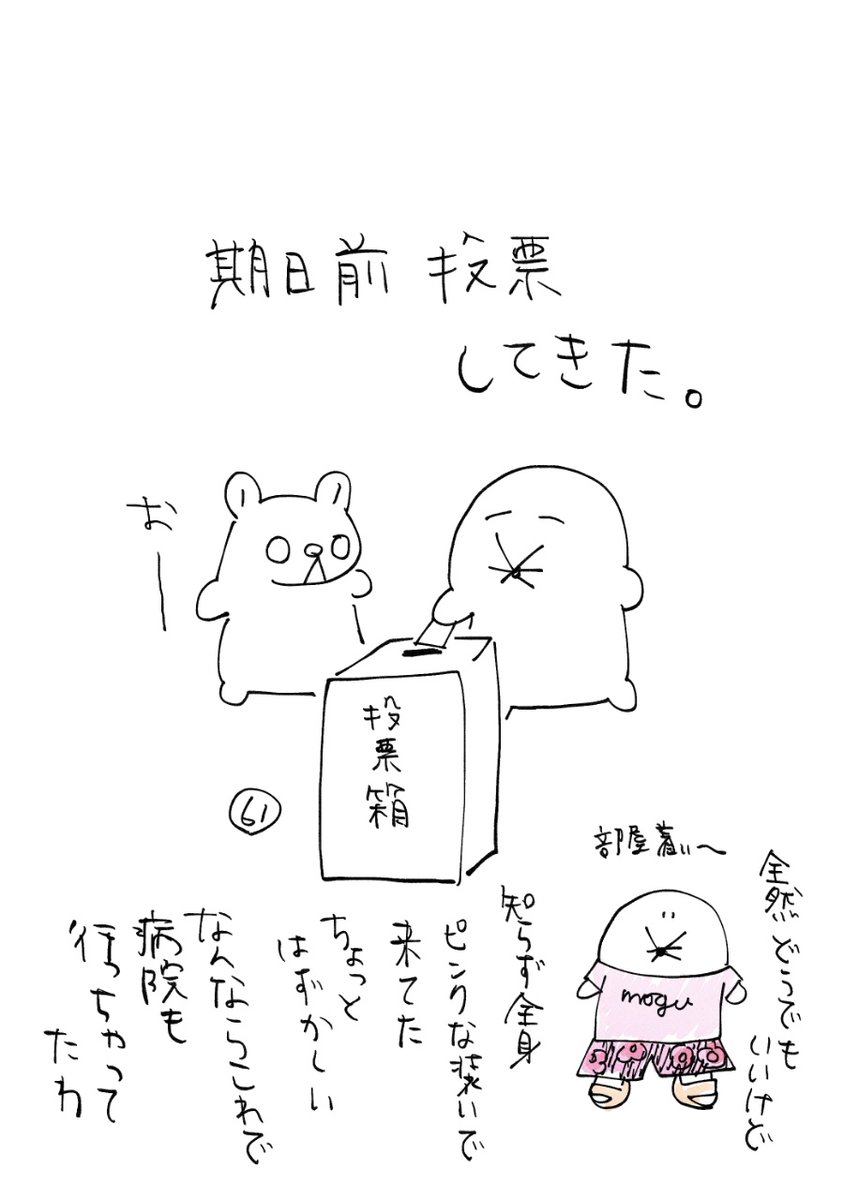 期日前投票
してきた。
おー
投票箱
61
部屋着ぃ〜
mogu
全然どうでも
いいけど
知らず全身
ピンクな装いで
来てた
ちょっと
はずかしい
なんならこれで
病院も
行っちゃって
たわ